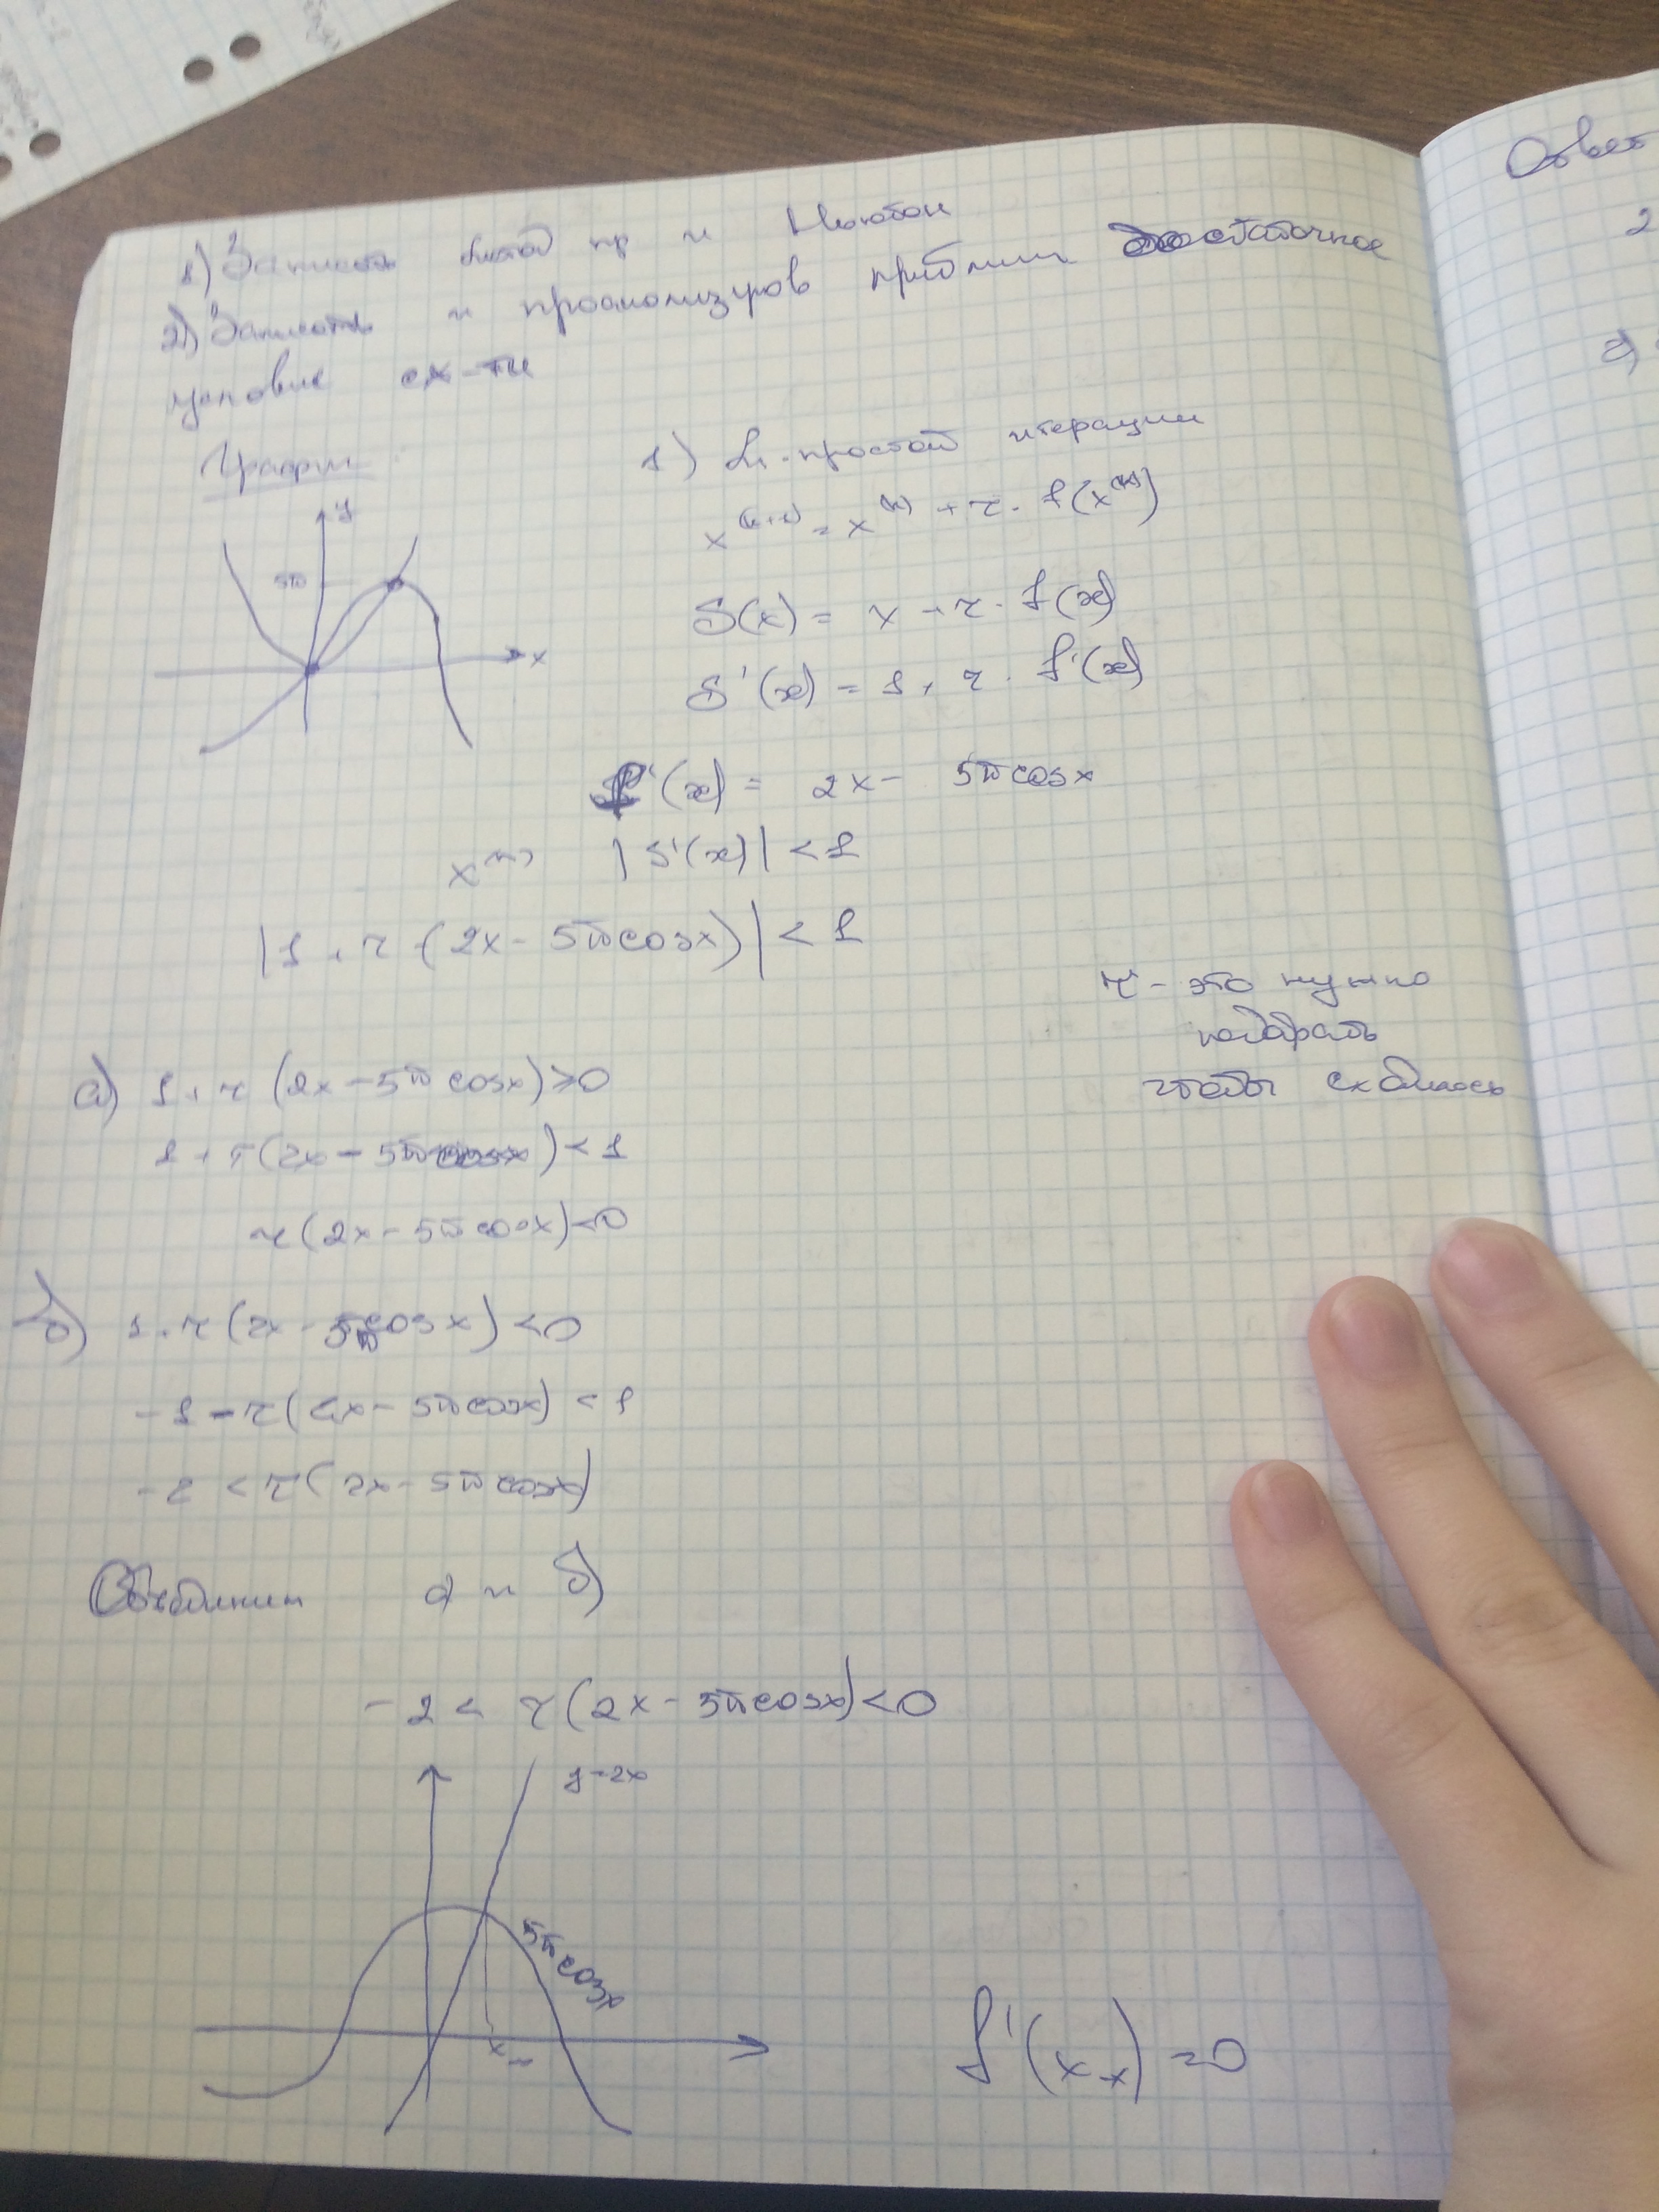 1) Записать метод пр и Ньютон
2) Записать и проанализиров приближ достаточное
условие сх-ти
График
y
5π
x
1) М. простой итерации
x^(k+1) = x^(k) + τ · f(x^(k))
S(x) = x + τ · f(x)
S'(x) = 1 + τ · f'(x)
f'(x) = 2x - 5π cosx
|S'(x)| < 1
|1 + τ (2x - 5π cosx)| < 1
τ - это нужно
подобрать
чтобы сходилось
а) 1 + τ (2x - 5π cosx) ≥ 0
1 + τ (2x - 5π cosx) < 1
τ (2x - 5π cosx) < 0
б) 1 + τ (2x - 5π cosx) < 0
-1 - τ (2x - 5π cosx) < 1
-2 < τ (2x - 5π cosx)
Объединим а) и б)
-2 < τ (2x - 5π cosx) < 0
y=2x
5π cosx
x*
f'(x*) = 0
Ответ
2